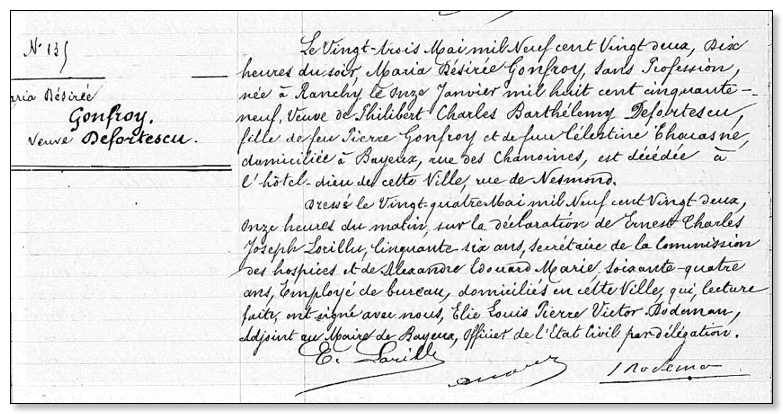 N° 135
Maria Désirée
Gonfroy.
Veuve Defortescu.
Le Vingt-trois Mai mil Neuf cent Vingt deux, Dix
heures du soir, Maria Désirée Gonfroy, sans Profession,
née à Ranchy le onze Janvier mil huit cent cinquante-
neuf, Veuve de Philibert Charles Barthélemy Defortescu,
fille de feu Pierre Gonfroy et de feue Célestine Thouasne,
domiciliée à Bayeux, rue des Chanoines, est décédée à
l'hôtel-dieu de cette Ville, rue de Nesmond.
Dressé le Vingt-quatre Mai mil Neuf cent Vingt deux,
Onze heures du matin, sur la déclaration de Ernest Charles
Joseph Lorille, Cinquante six ans, secrétaire de la Commission
des hospices et de Alexandre Edouard Marie, soixante-quatre
ans, Employé de bureau, domiciliés en cette Ville, qui, lecture
faite, ont signé avec nous, Elie Louis Pierre Victor Dodeman,
Adjoint au Maire de Bayeux, Officier de l'Etat Civil par délégation.
E. Lorille